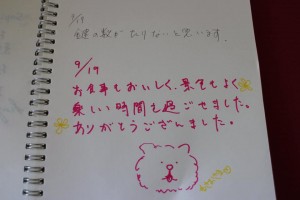 9/17
鍵の数が たりないと思います.
9/19
お食事もおいしく、景色もよく
楽しい時間を過ごせました。
ありがとうございました。